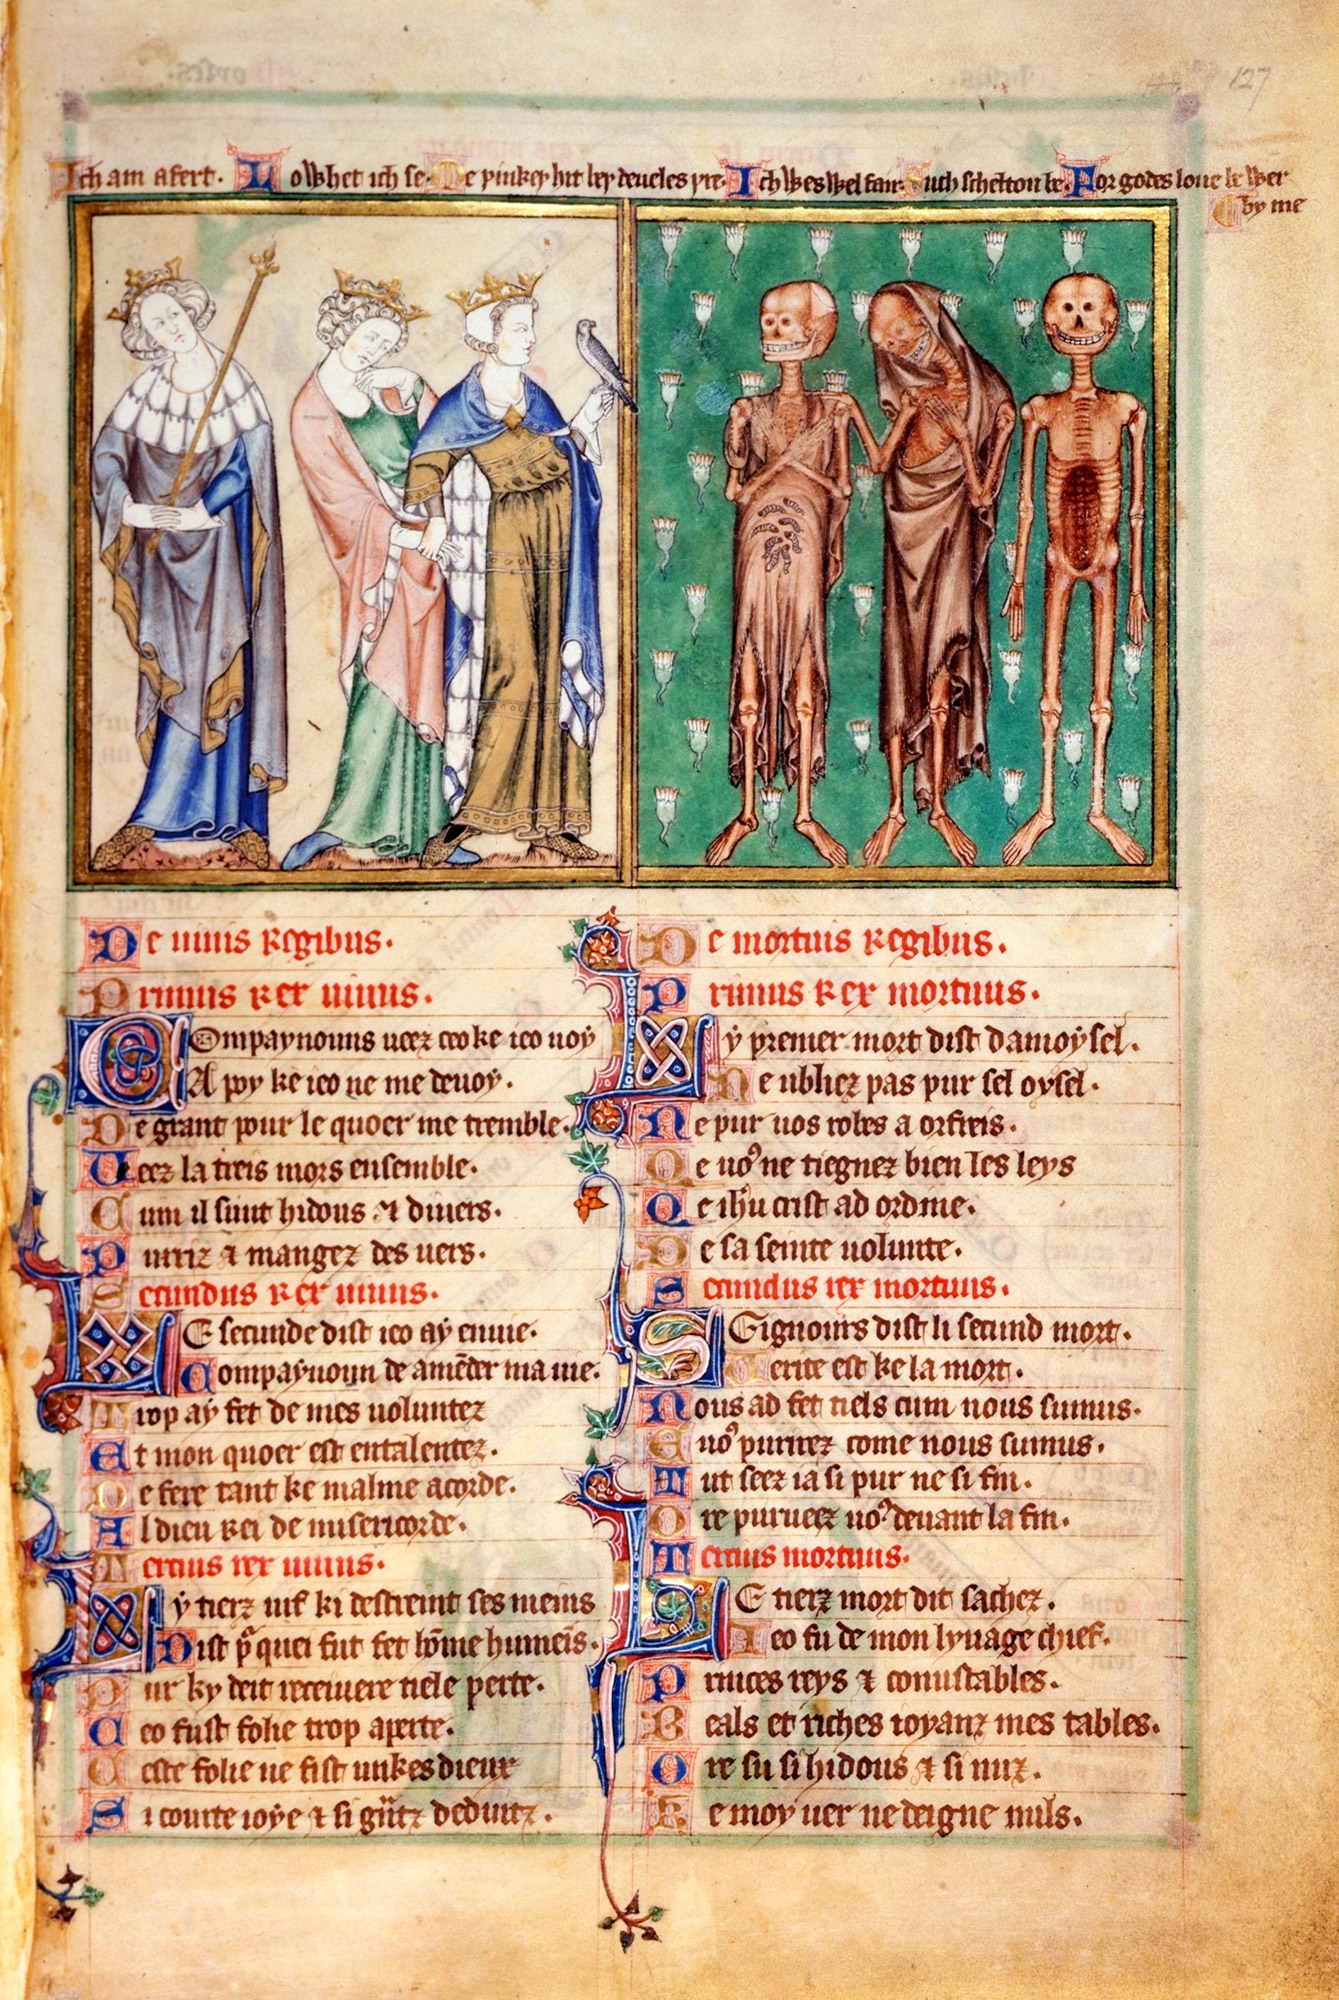 127
Ich am afert. Lo whet ich se. Me þinkeþ hit bey deueles þre. Ich wes wel fair. Such schelton be. For godes loue be wer
by me
De uiuis Regibus.
Primus Rex uiuus.
Compaynouns ueez ceo ke ieo uoy
A poy ke ieo ne me deuoy.
De grant pour le quoer me tremble.
Ueez la treis mors ensemble.
Cum il sunt hidous & diuers.
Purriz & mangez des uers.
Secundus Rex uiuus.
Le secunde dist ieo ay enuie.
Compaynoun de amēder ma uie.
Trop ay fet de mes uoluntez
Et mon quoer est entalentez.
De fere tant ke malme acorde.
Al dieu Rei de misericorde.
Tercius rex uiuus.
Ly tierz uif ki destreint ses meins
Dist pͣquei fut fet hōme humeīs.
Pur ky deit receiuere tiele perte.
Ceo fust folie trop aperte.
Ceste folie ne fist unkes dieux
Si courte ioye & si gͣ̄tz deduitz.
De mortuis Regibus.
Primus Rex mortuus.
Ly premer mort dist damoysel.
Ne ubliez pas pur sel oysel.
Ne pur uos robes a orfreis.
Qe uoꝰ ne tiegnez bien les leys
Qe ihu crist ad ordine.
De sa seinte uolunte.
Secundus rex mortuus.
Seignours dist li secund mort.
Uerite est ke la mort.
Nous ad fet tiels cum nous sumus.
E uoꝰ purrirez come nous sumus.
Tut seez ia si pur ne si fin.
Ore purueez uoꝰ deuant la fin.
Tercius mortuus.
Le tierz mort dit sachez.
Ieo fu de mon lynage chief.
Princes reys & conustables.
Beals et riches ioyanz mes tables.
Ore su si hidous & si nuz.
Ke moy uer ne deigne nuls.